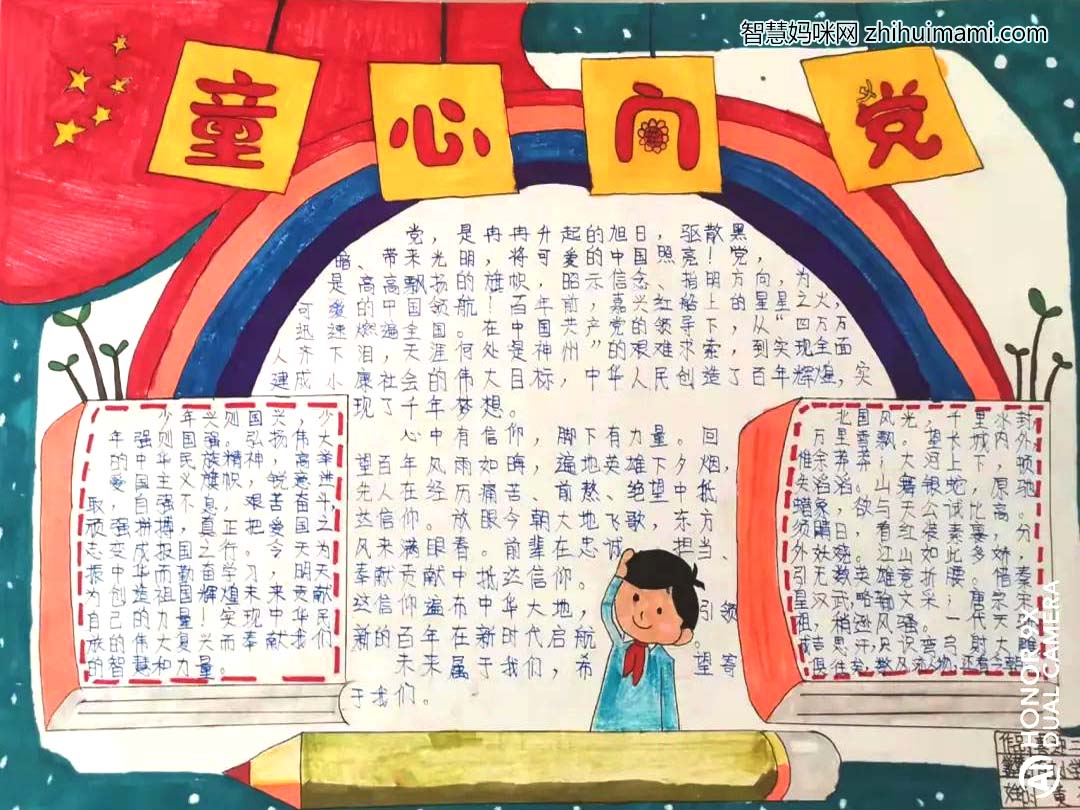 智慧妈咪网 zhihuimami.com
童心向党
党，是冉冉升起的旭日，驱散黑
暗、带来光明，将可爱的中国照亮！党，
是高高飘扬的旗帜，昭示信念、指明方向，为
可爱的中国领航！百年前，嘉兴红船上的星星之火，
迅速燃遍全国。在中国共产党的领导下，从“四万万
人齐下泪，天涯何处是神州”的艰难求索，到实现全面
建成小康社会的伟大目标，中华人民创造了百年辉煌，实
现了千年梦想。
心中有信仰，脚下有力量。回
望百年风雨如晦，遍地英雄下夕烟，
先人在经历痛苦、前熬、绝望中抵
达信仰。放眼今朝大地飞歌，东方
风来满眼春。前辈在忠诚、担当、
奉献贡献中抵达信仰。
这信仰遍布中华大地，引领
新的百年在新时代启航。
未来属于我们，希望寄
于我们。
少年兴则国兴，少
年强则国强。弘扬伟大
的中华民族精神，高举
爱国主义旗帜，锐意进
取，自强不息，艰苦奋斗，
顽强拼搏，真正把爱国之
志变成报国之行。今天为
振中华而勤奋学习，明天
为创造祖国辉煌未来贡献
自己的力量！实现中华民
族的伟大复兴而奉献我们
的智慧和力量。
北国风光，千里冰封
万里雪飘。望长城内外
惟余莽莽；大河上下，顿
失滔滔。山舞银蛇，原驰
蜡象，欲与天公试比高，
须晴日，看红装素裹，分
外妖娆。江山如此多娇，
引无数英雄竞折腰。惜秦
皇汉武，略输文采；唐宗宋
祖，稍逊风骚。一代天
成吉思汗，只识弯弓射大
HONOR 9X
DUAL CAMERA
AI